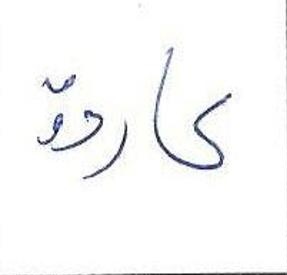 کاردۆ